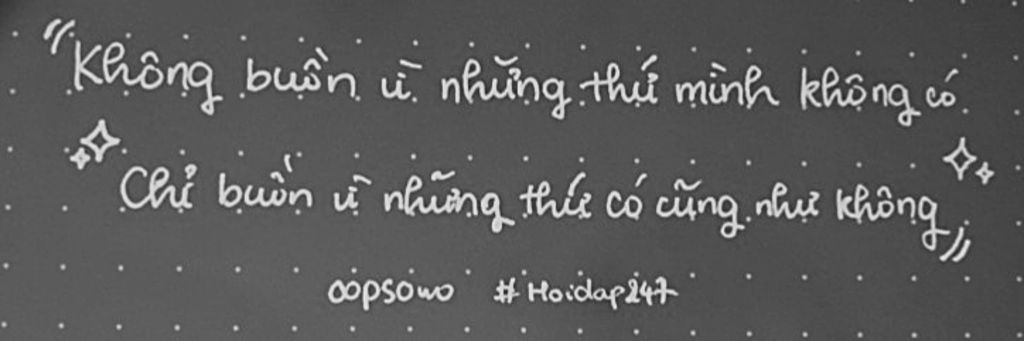 “Không buồn vì những thứ mình không có
Chỉ buồn vì những thứ có cũng như không”
oopsowo #Hoidap247